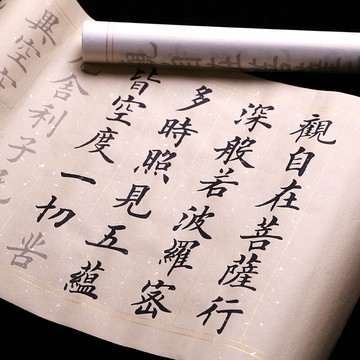 觀自在菩薩行
深般若波羅密
多時照見五蘊
皆空度一切苦
舍利子色
異空空